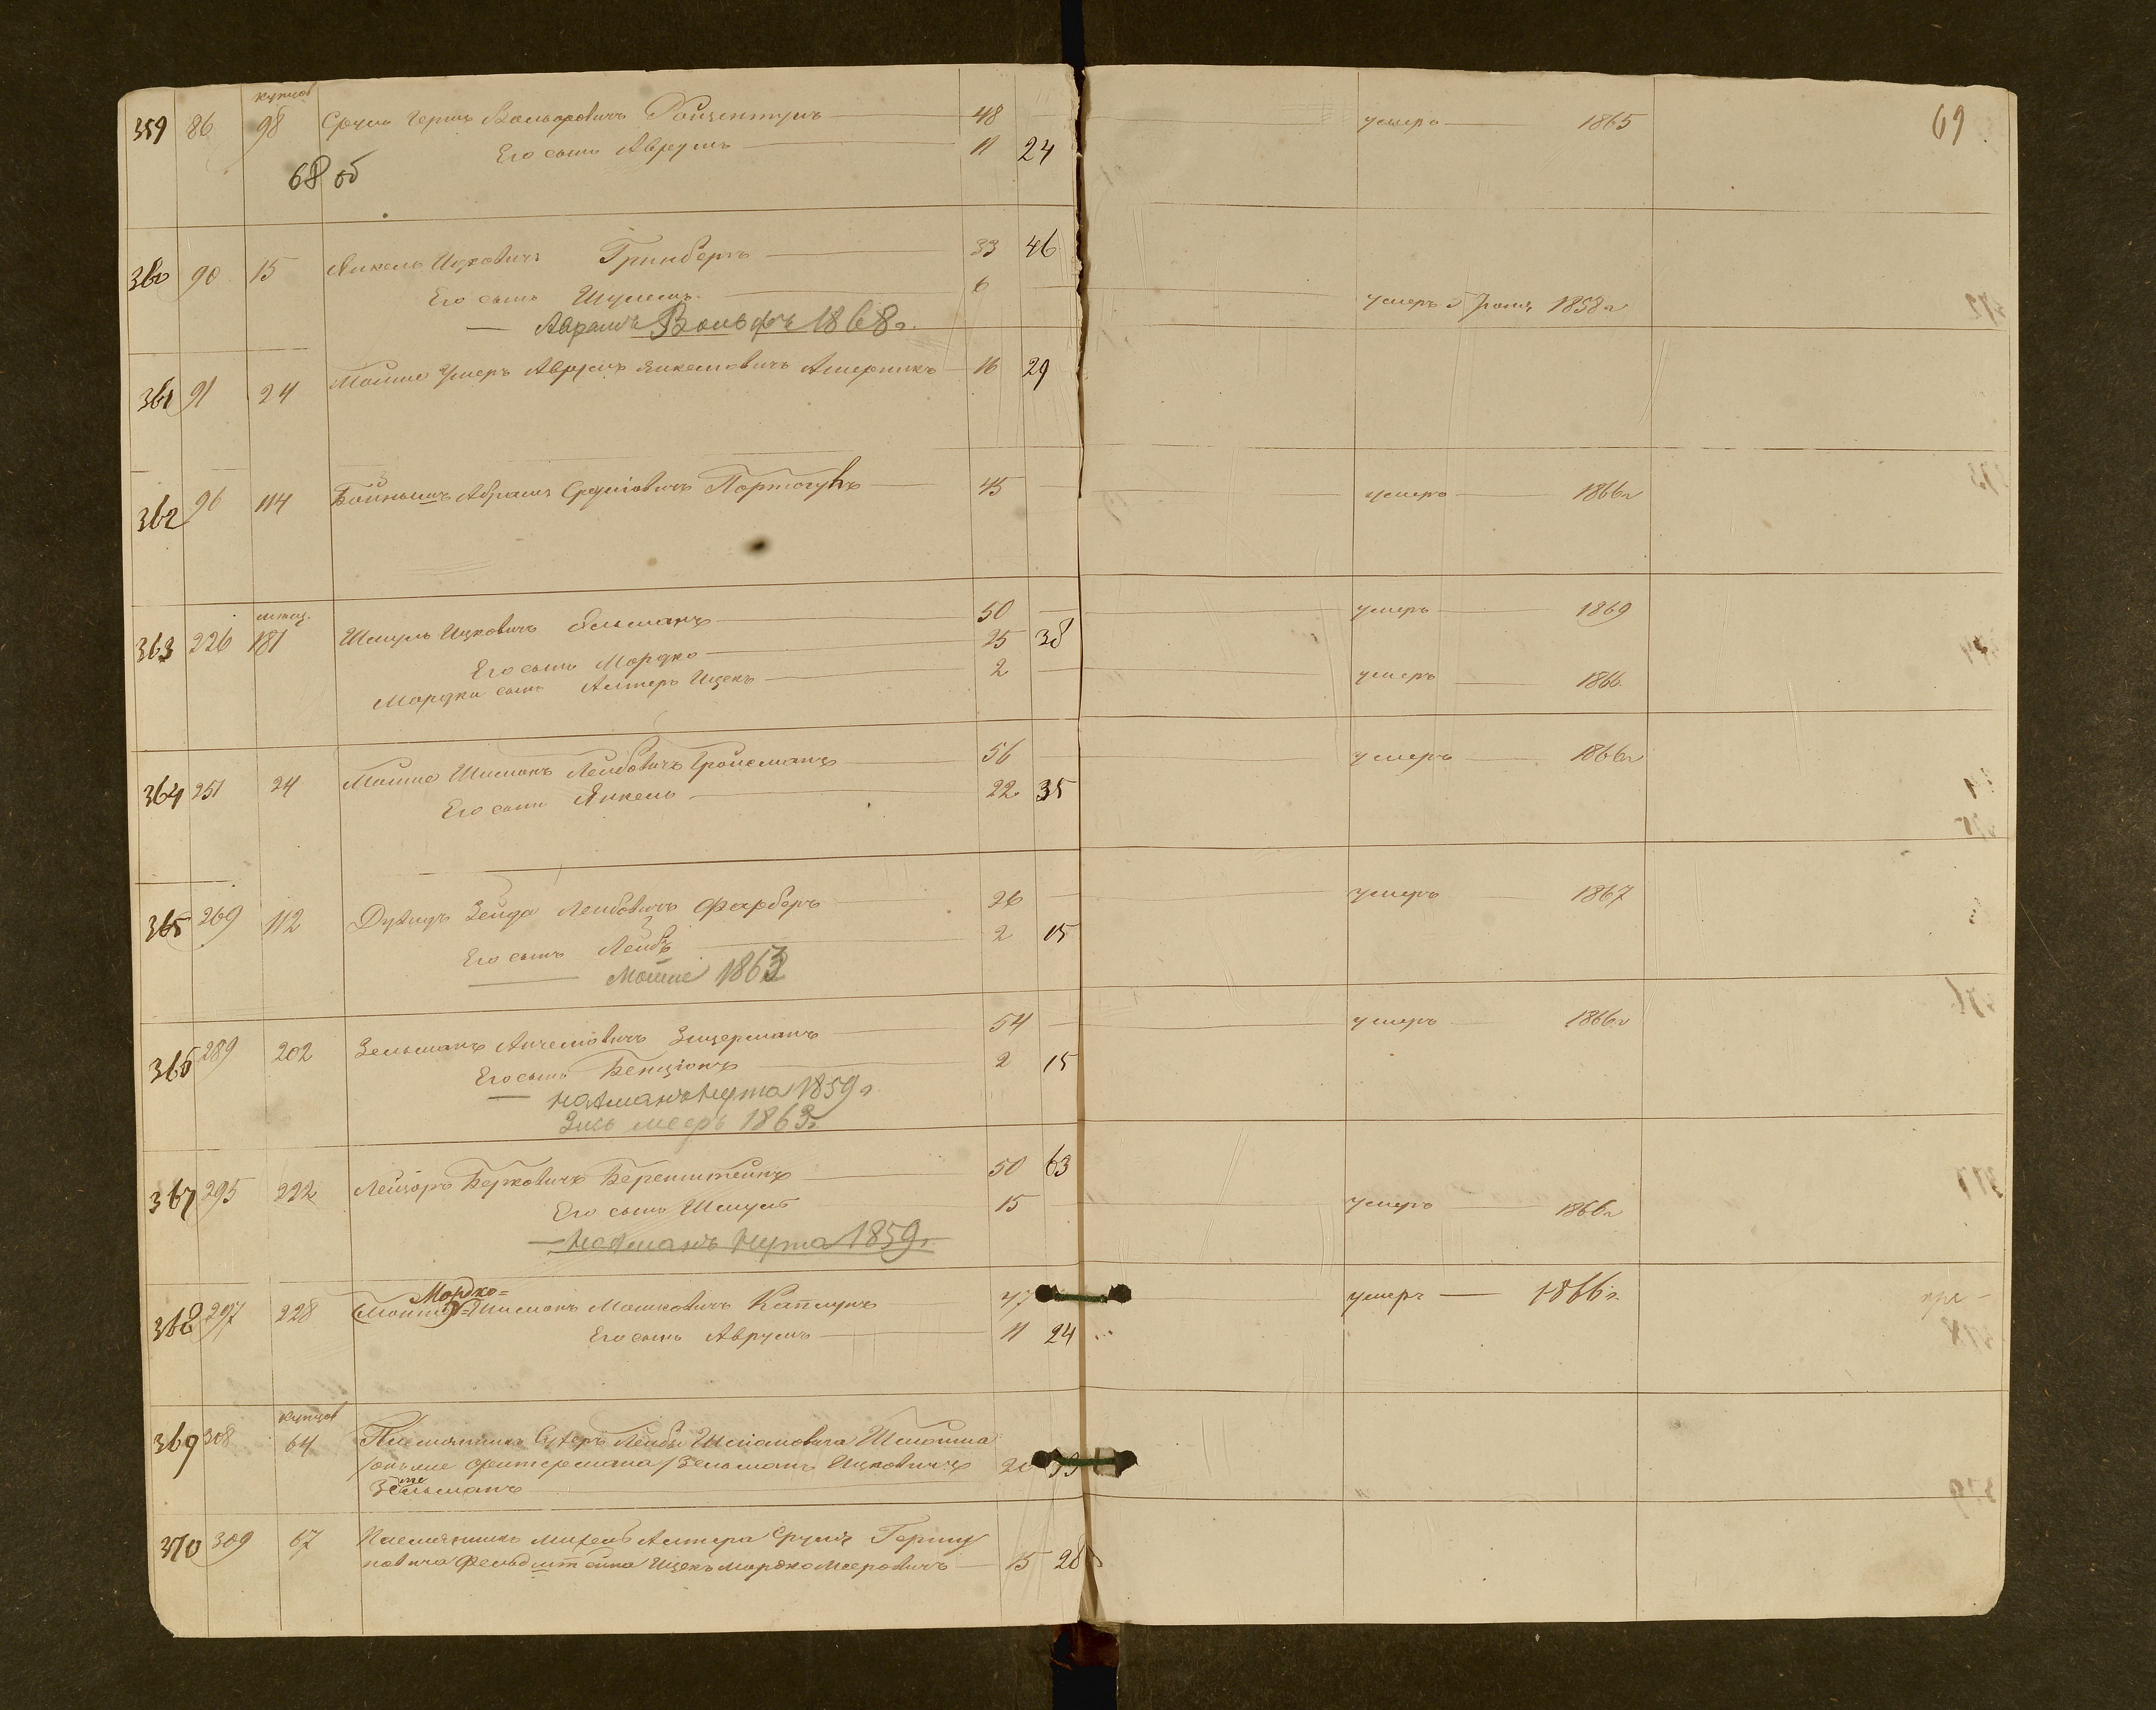 купцов
359 86 98 Сруль Герш Вольфовичъ Ройзентулъ 48 умеръ 1865 69
Его сынъ Аврумъ 11 24
68 об
360 90 15 Янкель Ицковичъ Гринбергъ 33 46
Его сынъ Шулимъ 6 умеръ 1858 г
Авраамъ Вольфъ 1868 г.
361 91 24 Мошко Умеръ Аврумъ Янкелевичъ 16 29
362 96 114 Абрамъ Сруліовичъ 45 умеръ 1866 г
363 226 181 Шмуль Ицковичъ 50 умеръ 1869
Его сынъ Мордко 25 38
Мордки сынъ Алтеръ Ицекъ 2 умеръ 1866
364 251 24 Мошко Шимонъ Лейбовичъ Гройсманъ 56 умеръ 1866 г
Его сынъ Янкель 22 35
365 269 112 Дувидъ Зейда Лейбовичъ Фарберъ 26 умеръ 1867
Его сынъ Лейбъ 2 15
Мошко 1863
366 289 202 Зельманъ Анчелевичъ Зицерманъ 54 умеръ 1866 г
Его сынъ Бенціонъ 2 15
Нахманъ Нута 1859 г
Зись Мееръ 1863 г
367 295 222 Лейзоръ Берковичъ Беренштейнъ 50 63
Его сынъ Шмуль 15 умеръ 1866 г
Нахманъ Нута 1859 г.
Мордко=
368 297 228 Шимонъ Мошковичъ Каплунъ 47 умеръ 1866 г.
Его сынъ Аврумъ 11 24
купцов
369 308 64 Племянникъ Лейбы Шмоиша
Зельманъ Ицковичъ 20
Зельманъ
370 309 67 Племянникъ Михель Алтера Сруля Гершу
новича Фельдштейна Ицекъ Мордко Мееровичъ 15 28